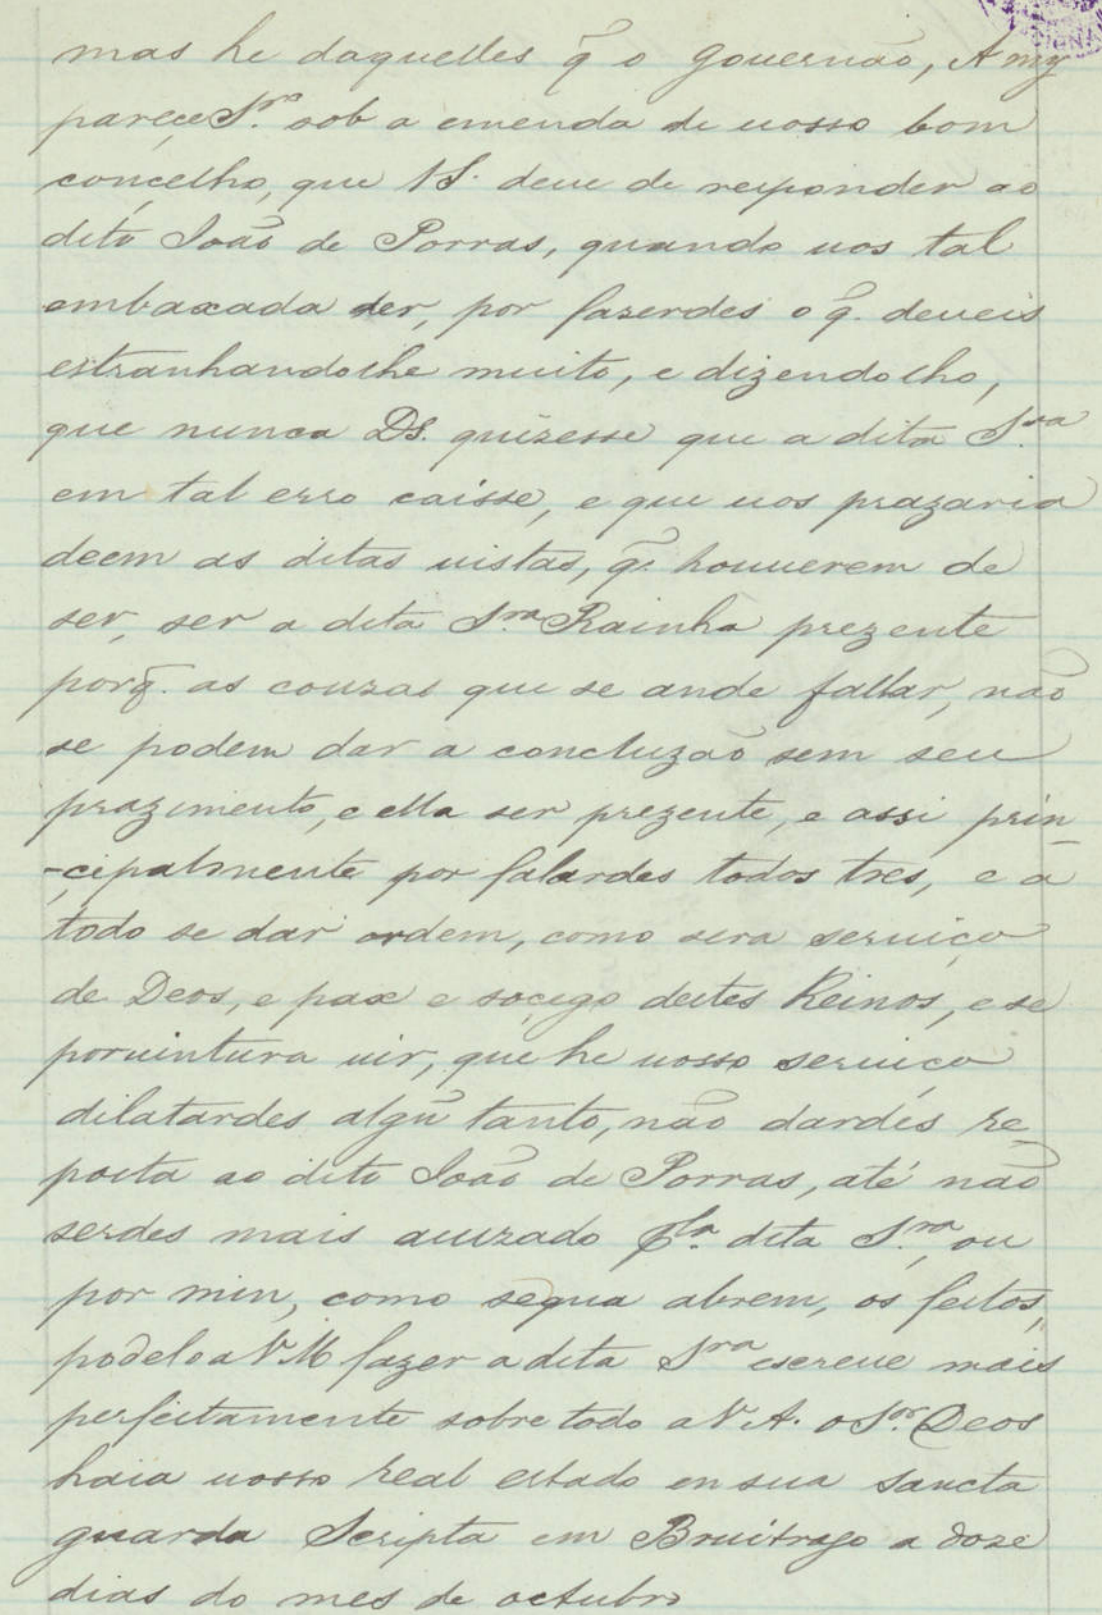 mas he daquelles q̃ o gouernão, A my
pareçe S.ʳ sob a emenda de uosso bom
conçelho, que V S. deue de responder ao
dito João de Porras, quando uos tal
embaxada der, por fazerdes o q̃. deueis
estranhandolhe muito, e dizendolho,
que nunca Ds. quizesse que a dita S.ʳᵃ
em tal erro caisse, e que uos prazaria
deem as ditas uistas, q̃. houuerem de
ser, ser a dita S.ʳᵃ Rainha prezente
porq̃. as couzas que se ande fallar, não
se podem dar a concluzão sem seu
prazimento, e ella ser prezente, e assi prin
-çipalmente por falardes todos tres, e a
todo se dar ordem, como sera seruiço
de Deos, e pax e soçego destes Reinos, e se
poruintura uir, que he uosso seruiço
dilatardes algũ tanto, não dardes re
posta ao dito João de Porras, até não
serdes mais auizado p.ˡᵃ dita S.ʳᵃ, ou
por min, como segua abrem, os feitos,
podelo a V M fazer a dita S.ʳᵃ escreue mais
perfeitamente sobre todo a V. A. o S.ᵒʳ Deos
haia uosso real estado en sua sancta
guarda Scripta em Bruitrago a doze
dias do mes de octubro